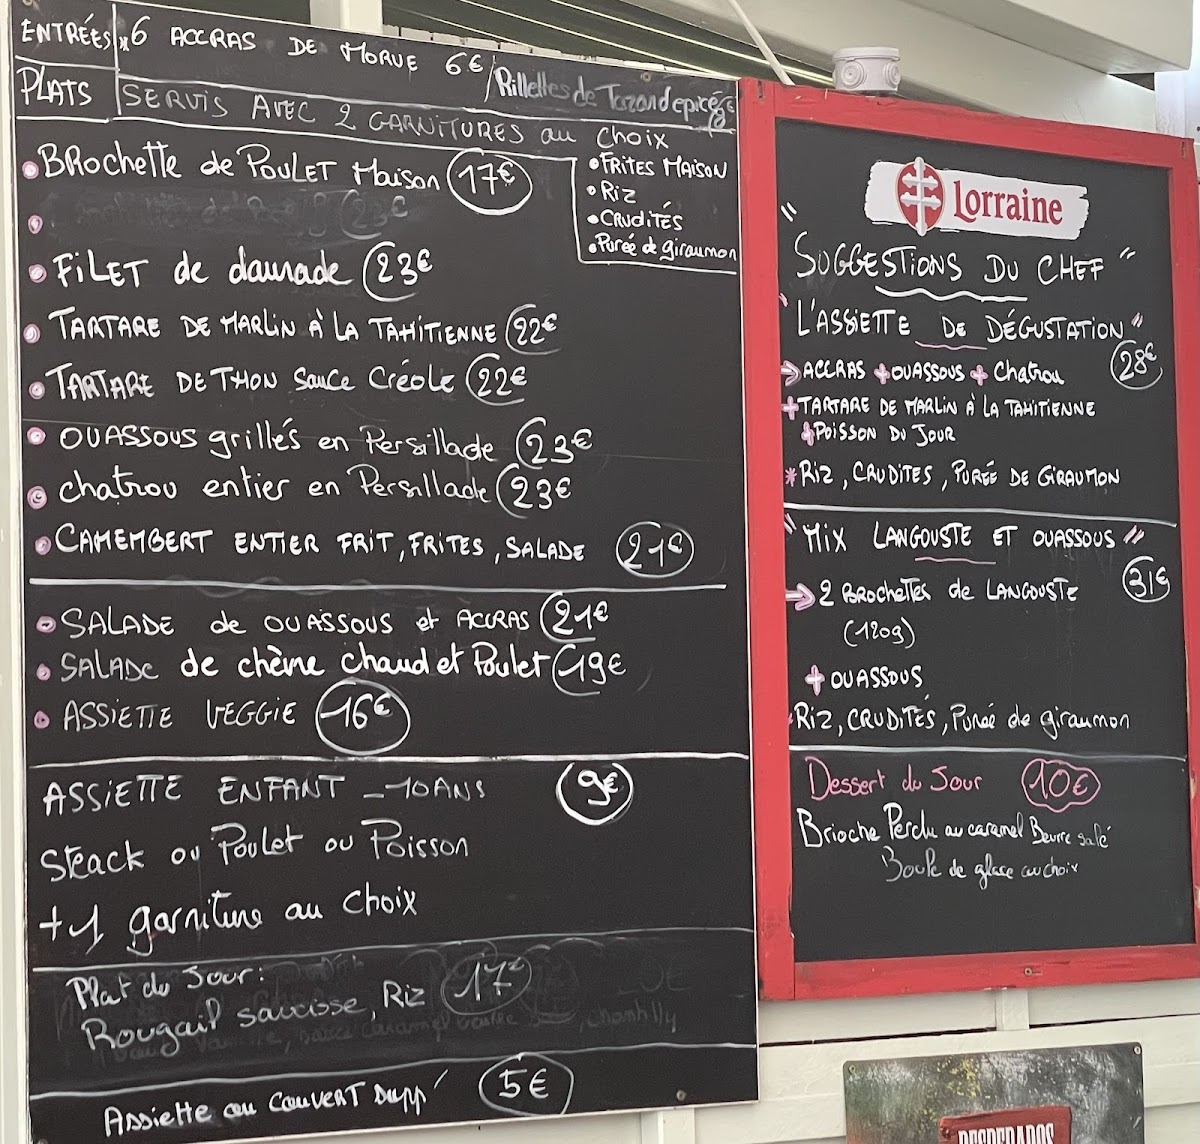 ENTRÉES * 6 ACCRAS DE MORUE 6€ / Rillettes de
PLATS SERVIS AVEC 2 GARNITURES au choix
• FRITES MAISON
• Riz
• CRUDITÉS
• Purée de giraumon
• BRochette de POULET Maison 17€
• FILET de daurade 23€
• TARTARE DE MARLIN À LA TAHITIENNE 22€
• TARTARE DE THON sauce Créole 22€
• OUASSOUS grillés en Persillade 23€
• chatrou entier en Persillade 23€
• CAMEMBERT ENTIER FRIT, FRITES, SALADE 21€
• SALADE de OUASSOUS et ACCRAS 21€
• SALADE de chèvre chaud et Poulet 19€
• ASSIETTE VEGGIE 16€
ASSIETTE ENFANT -10ANS 9€
Steack ou Poulet ou Poisson
+1 garniture au choix
Plat du Jour:
Rougail saucisse, Riz 17€
Assiette ou COUVERT Supp' 5€
Lorraine
"SUGGESTIONS DU CHEF"
"L'ASSIETTE DE DÉGUSTATION"
28€
→ ACCRAS + OUASSOUS + Chatrou
+ TARTARE DE MARLIN À LA TAHITIENNE
+ POISSON DU JOUR
* RIZ, CRUDITES, PURÉE DE GIRAUMON
"MIX LANGOUSTE ET OUASSOUS"
31€
→ 2 BROCHETTES de LANGOUSTE
(120g)
+ OUASSOUS
RIZ, CRUDITÉS, Purée de giraumon
Dessert du Jour 10€
Brioche Perdu au caramel Beurre salé
Boule de glace au choix
DESPERADOS